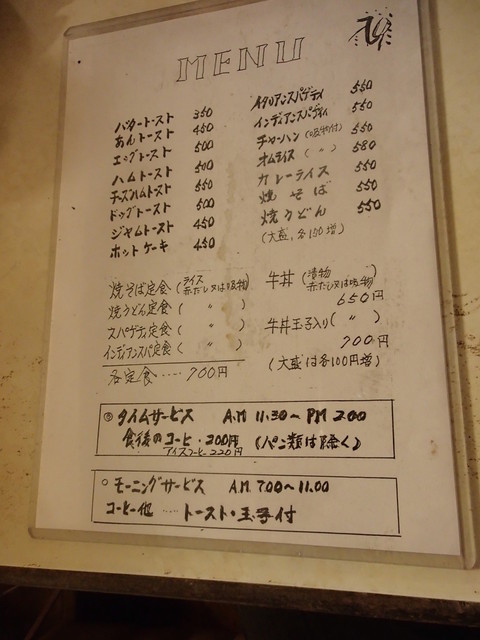 MENU
バタートースト 350
あんトースト 450
エッグトースト 500
ハムトースト 500
チーズハムトースト 550
ドッグトースト 500
ジャムトースト 450
ホットケーキ 450
イタリアンスパゲティ 550
インディアンスパゲティ 550
チャーハン (吸物付) 550
オムライス ( 〃 ) 580
カレーライス 550
焼そば 550
焼うどん 550
(大盛、各150増)
焼そば定食 (ライス 赤だし又は吸物)
焼うどん定食 ( 〃 )
スパゲティ定食 ( 〃 )
インディアンスパ定食 ( 〃 )
各定食 ‥‥ 700円
牛丼 (漬物 赤だし又は吸物)
650円
牛丼玉子入り ( 〃 )
700円
(大盛は各100円増)
タイムサービス A.M 11.30〜PM 2.00
食後のコーヒ・200円 (パン類は除く)
アイスコーヒー 220円
○ モーニングサービス A.M. 7.00〜11.00
コーヒー他 ‥‥ トースト・玉子付